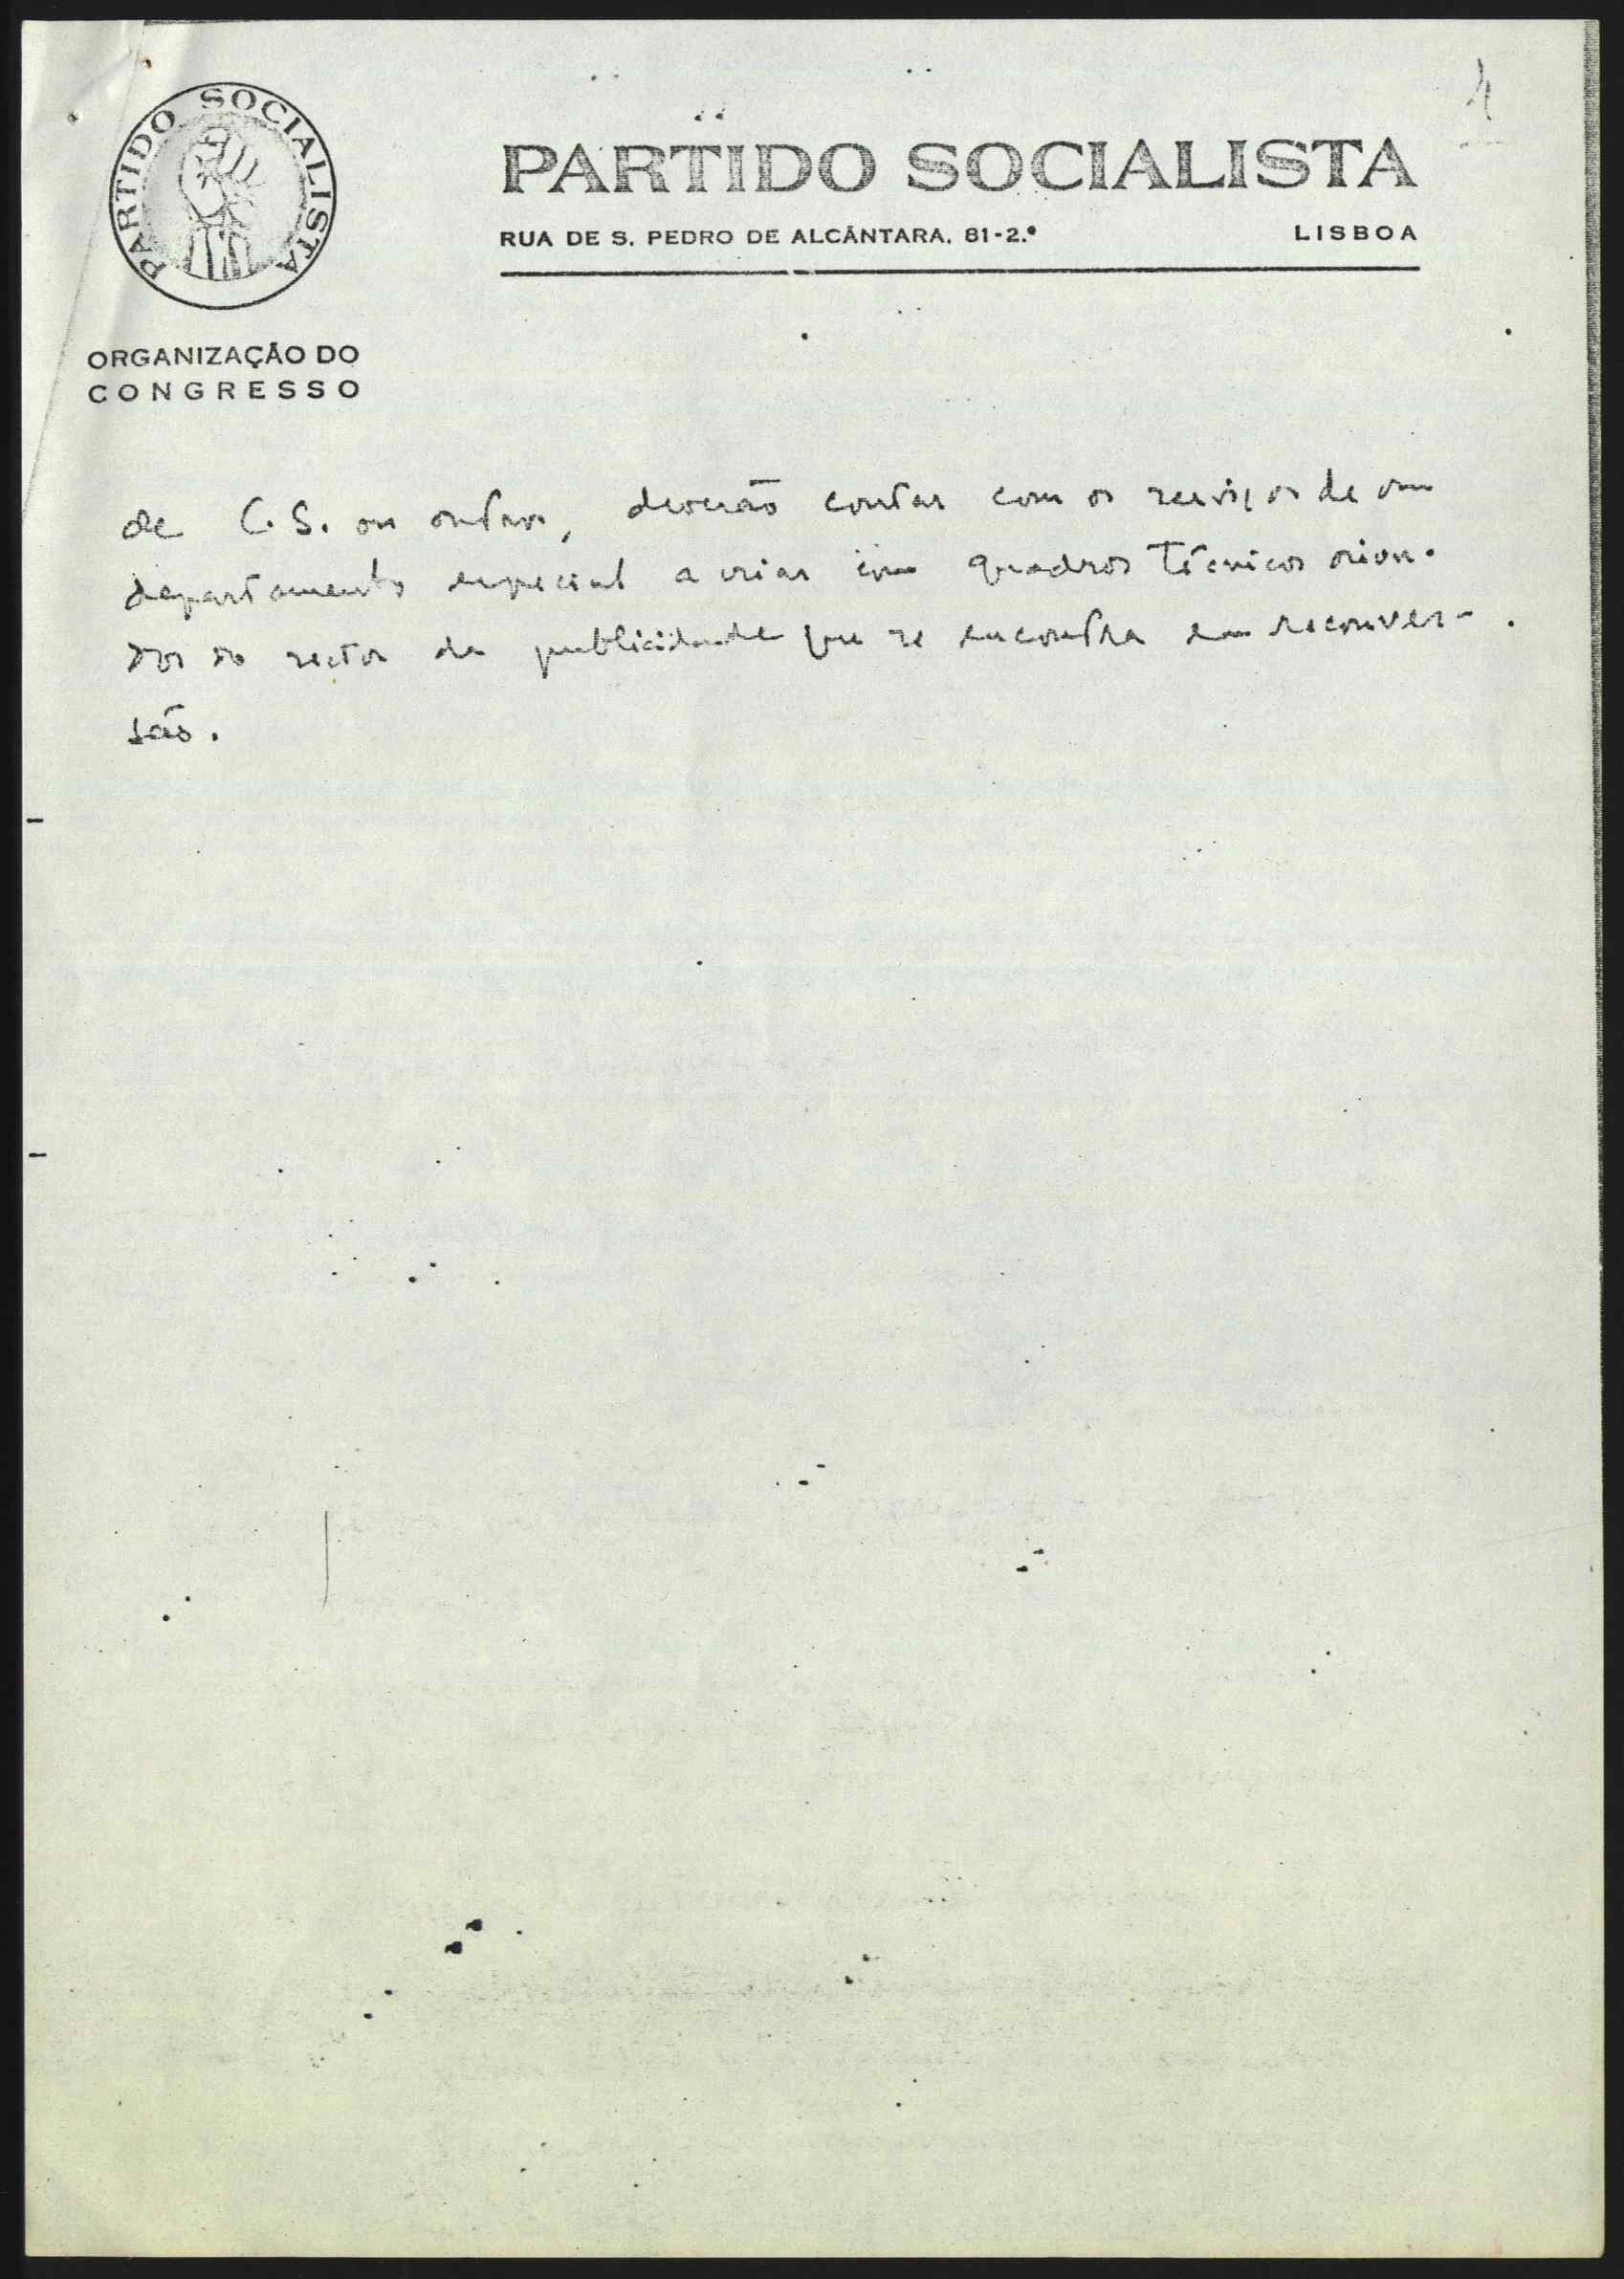 PARTIDO SOCIALISTA
PARTIDO SOCIALISTA
RUA DE S. PEDRO DE ALCÂNTARA, 81-2.º LISBOA
ORGANIZAÇÃO DO
CONGRESSO
de C.S. ou outros, deverão contar com os serviços de um
departamento especial a criar com quadros técnicos oriun-
dos do sector da publicidade que se encontra em reconver-
são.